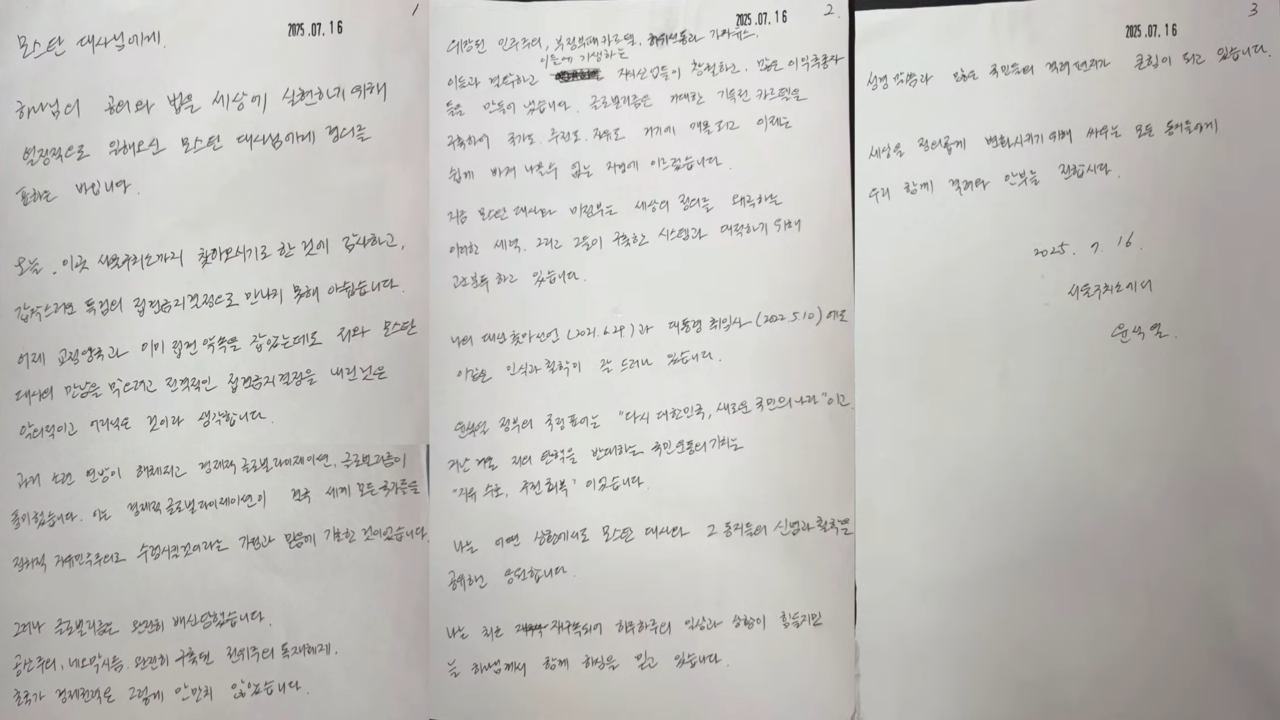 1
2025.07.16
모스탄 대사님에게.
하나님의 공의와 법을 세상에 실현하기 위해
열정적으로 일해오신 모스탄 대사님에게 경의를
표하는 바입니다.
오늘, 이곳 서울구치소까지 찾아오시기로 한 것에 감사하고,
갑작스러운 특검의 접견금지결정으로 만나지 못해 아쉽습니다.
어제 교정당국과 이미 접견 약속을 잡았는데도 저와 모스탄
대사의 만남을 막으려고 전격적인 접견금지결정을 내린것은
악의적이고 어리석은 것이라 생각합니다.
과거 소련 연방이 해체되고 경제적 글로벌라이제이션, 글로벌리즘이
풍미했습니다. 이는 경제적 글로벌라이제이션이 결국 세계 모든국가들을
정치적 자유민주주의로 수렴시킬것이라는 가정과 믿음에 기초한 것이었습니다.
그러나 글로벌리즘은 완전히 배신당했습니다.
공산주의, 네오막시즘, 완전히 구축된 권위주의 독재체제,
초국가 경제권력은 그렇게 만만치 않았습니다.
2.
2025.07.16
민주주의, 부정부패카르텔, 허위선동과 가짜뉴스,
이들에 기생하는
이들과 결탁하고 지식산업들이 창궐하고, 많은 이익추종자
들을 만들어 냈습니다. 글로벌리즘은 거대한 기득권 카르텔을
구축하여 국가도, 주권도, 자유도, 거기에 매몰되고 이제는
쉽게 빠져 나올수 없는 지경에 이르렀습니다.
지금 모스탄 대사와 미정부는 세상의 정의를 왜곡하는
이러한 세력, 그리고 그들이 구축한 시스템과 대적하기 위해
고군분투 하고 있습니다.
나의 대선 출마선언 (2021.6.29.)과 대통령 취임사 (2022.5.10)에도
이같은 인식과 철학이 잘 드러나 있습니다.
윤석열 정부의 국정 표어는 "다시 대한민국, 새로운 국민의 나라"이고,
지난 겨울 저의 탄핵을 반대하는 국민운동의 기치는
"자유 수호, 주권 회복" 이었습니다.
나는 어떤 상황에서도 모스탄 대사와 그 동지들의 신념과 철학을
공유하고 응원합니다.
나는 최근 재구속되어 하루하루의 일상과 상황이 힘들지만
늘 하나님께서 함께 하심을 믿고 있습니다.
3
2025.07.16
성경 말씀과 많은 국민들의 격려 편지가 큰힘이 되고 있습니다.
세상을 정의롭게 변화시키기 위해 싸우는 모든 동지들에게
우리 함께 격려와 안부를 전합시다.
2025. 7. 16.
서울구치소에서
윤석열.